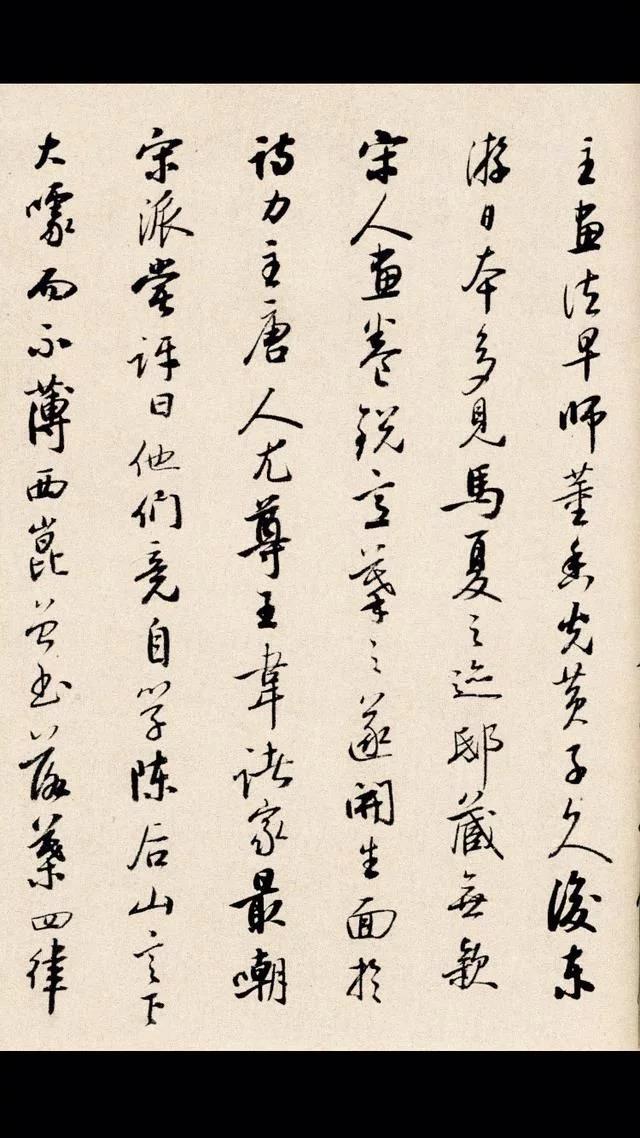 主畫法早師董香光黄子久後東
游日本多見馬夏之迹邸藏無款
宋人畫卷銳意摹之遂開生面於
詩力主唐人尤尊王韋諸家最嘲
宋派嘗評曰他們竟自学陳后山言下
大噱而不薄西崑曾书落葉四律